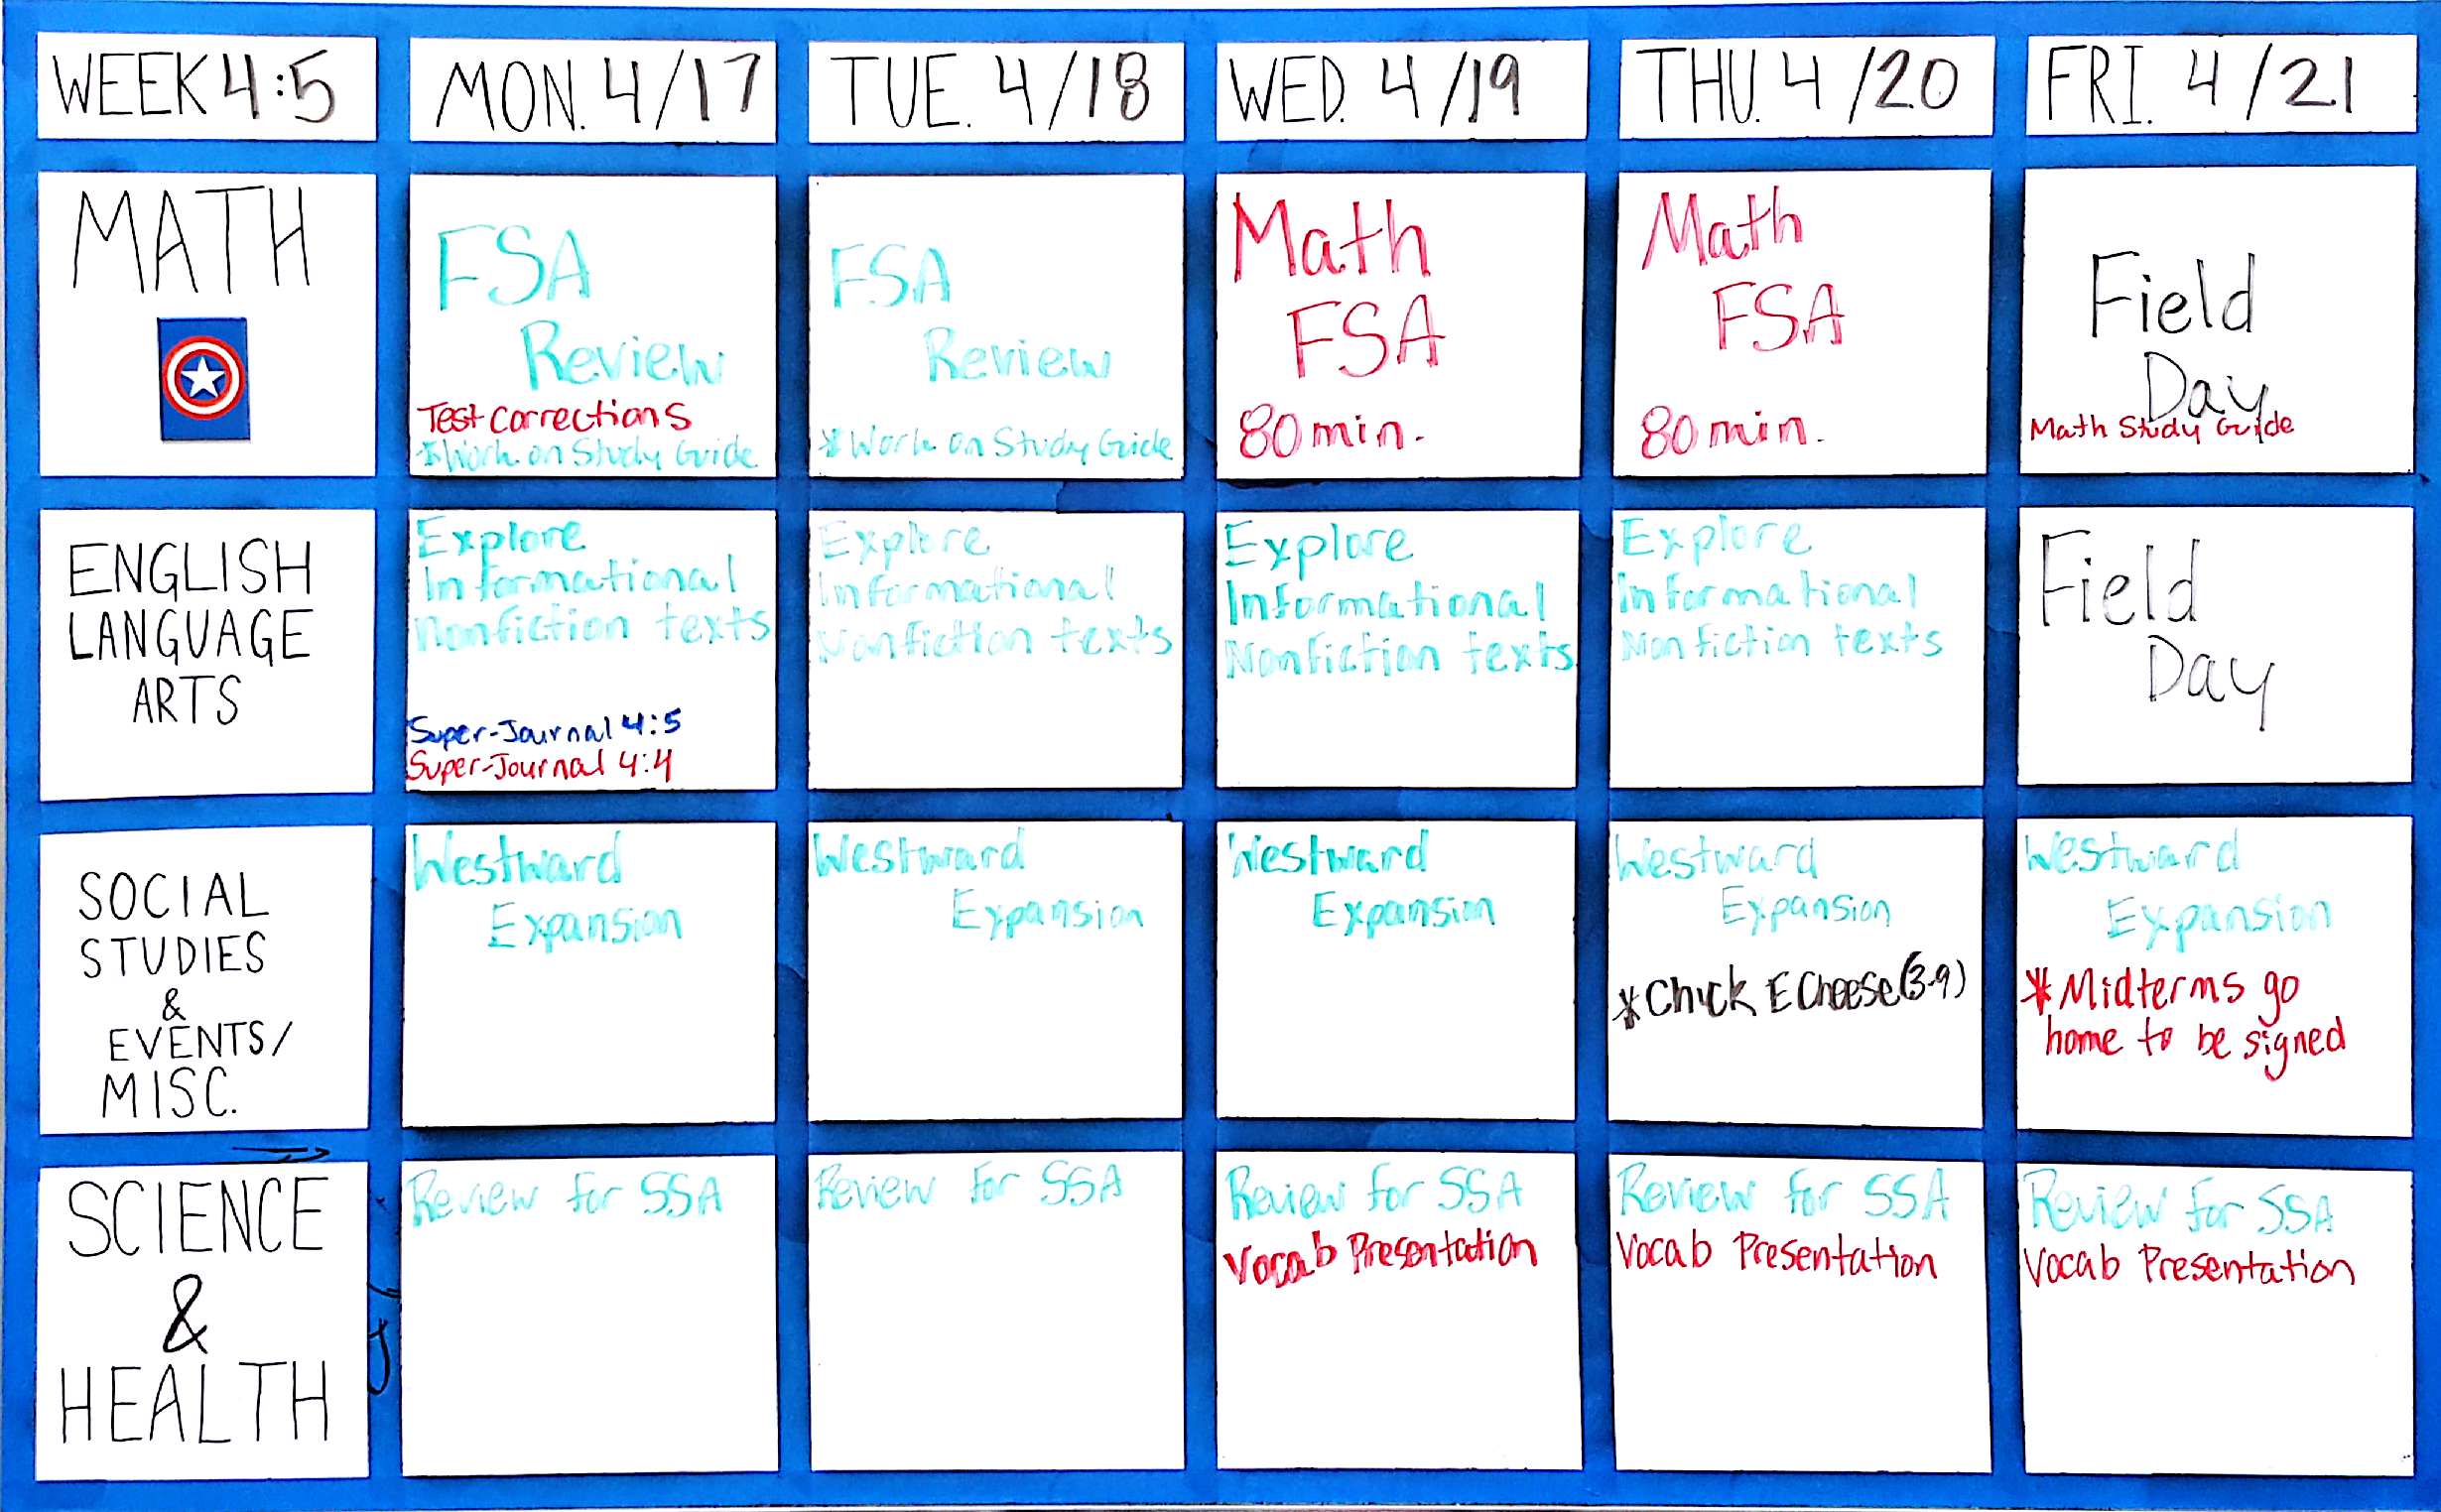 WEEK 4:5
MON. 4/17
TUE. 4/18
WED. 4/19
THU. 4/20
FRI. 4/21
MATH
FSA
Review
Test Corrections
*Work on Study Guide
FSA
Review
*Work on Study Guide
Math
FSA
80 min.
Math
FSA
80 min.
Field
Day
Math Study Guide
ENGLISH
LANGUAGE
ARTS
Explore
Informational
Nonfiction texts
Super-Journal 4:5
Super-Journal 4:4
Explore
Informational
Nonfiction texts
Explore
Informational
Nonfiction texts
Explore
Informational
Nonfiction texts
Field
Day
SOCIAL
STUDIES
&
EVENTS/
MISC.
Westward
Expansion
Westward
Expansion
Westward
Expansion
Westward
Expansion
*Chuck E Cheese (3-9)
Westward
Expansion
*Midterms go
home to be signed
SCIENCE
&
HEALTH
Review for SSA
Review for SSA
Review for SSA
Vocab Presentation
Review for SSA
Vocab Presentation
Review for SSA
Vocab Presentation